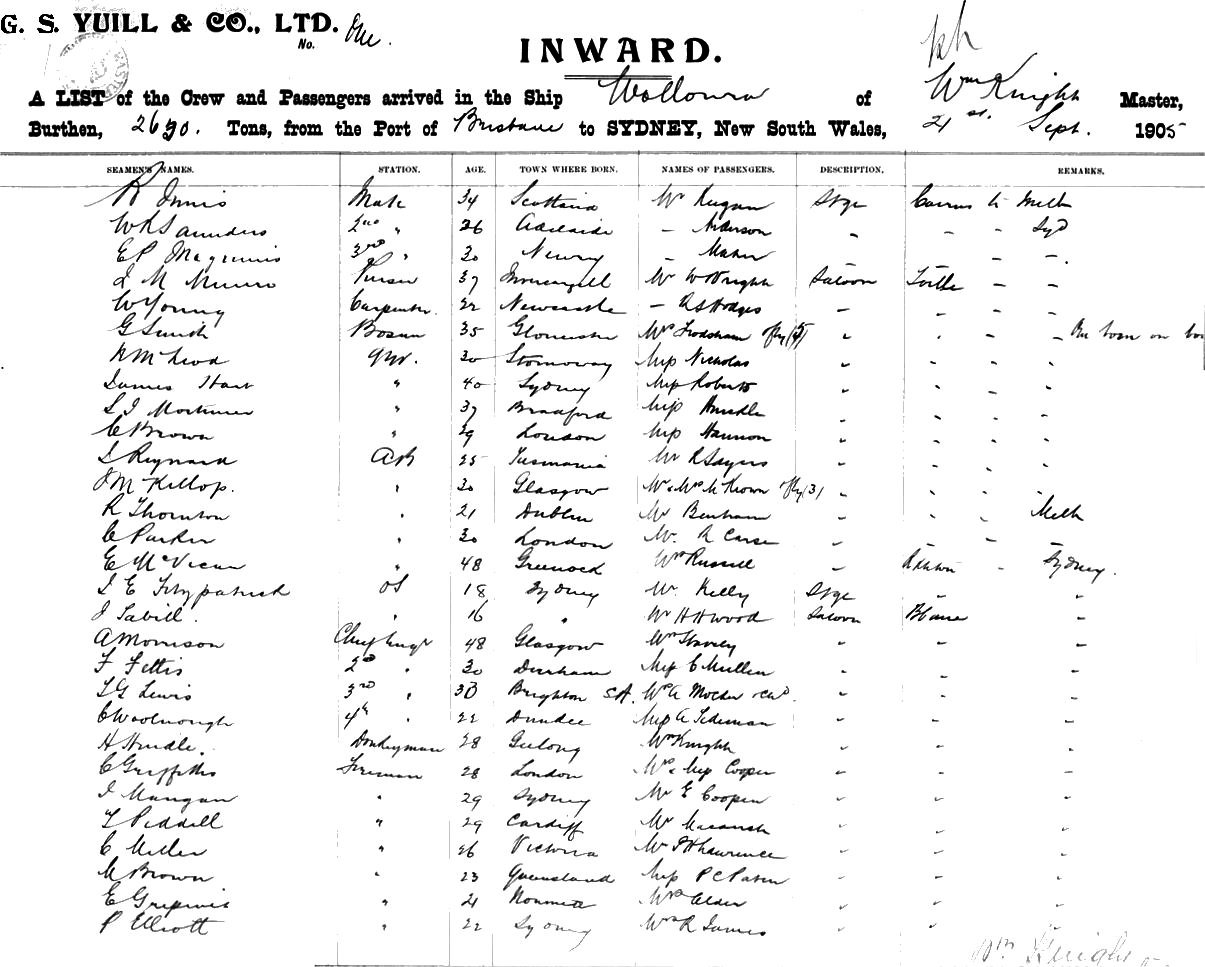 G. S. YUILL & CO., LTD.
No.
INWARD.
A LIST of the Crew and Passengers arrived in the Ship Wollowra of Wm Knight Master,
Burthen, 2630. Tons, from the Port of Brisbane to SYDNEY, New South Wales, 21st. Sept. 1905
SEAMEN'S NAMES. STATION. AGE. TOWN WHERE BORN. NAMES OF PASSENGERS. DESCRIPTION. REMARKS.
R Innis Mate 34 Scotland Mr Stge Cairns to Melb
W R Saunders 2nd " 26 Adelaide - Anderson " - - Syd
E P 3rd " 30 Newry - Maher - -
J M Munro Purser 37 Invercargill Mr W Wright Saloon - -
W Young Carpenter. 22 Newcastle - R S Hodges
G Smith Bosun 35 Gloucester Mrs Frodsham " - - born on
R McLeod QM. 30 Stornoway Miss Nicholas "
James Hart " 40 Sydney Miss Roberts "
S J Mortimer " 37 Bradford Miss "
C Brown " 29 London Miss Hannon "
J Reynard AB 25 Tasmania Mr R Sayers "
J McKillop. " 30 Glasgow Mr & Mrs McKeown (3) "
R Thornton " 21 Dublin Mr Benham " " " Melb
C Parker " 30 London Mr. A Carse " "
E McVicar " 48 Greenock Mrs Russell " - Sydney.
J E Fitzpatrick OS 18 Sydney Mr Kelly Stge " "
J Savill. " 16 " Mr H H Wood Saloon Bbane "
A Morrison Chief Engr 48 Glasgow " " "
F Fettis 2nd " 30 Durham Miss C Mullen " " "
T G Lewis 3rd " 30 Brighton S.A. " " "
C Woolnough 4th " 22 Dundee Miss A Tideman " " "
H Hindle. Donkeyman 28 Geelong Mrs Knight " " "
C Griffiths Fireman 28 London Mrs & Miss Cooper " " "
J Mangan " 29 Sydney Mr E Cooper " " "
T Piddell " 29 Cardiff Mr " " "
C Miller " 26 Victoria Mr Lawrence " " "
M Brown " 23 Queensland Miss P C Paten " " "
E " 21 Noumea Mrs Alder " " "
P Elliott " 22 Sydney Mrs R James " " "
Wm Knight